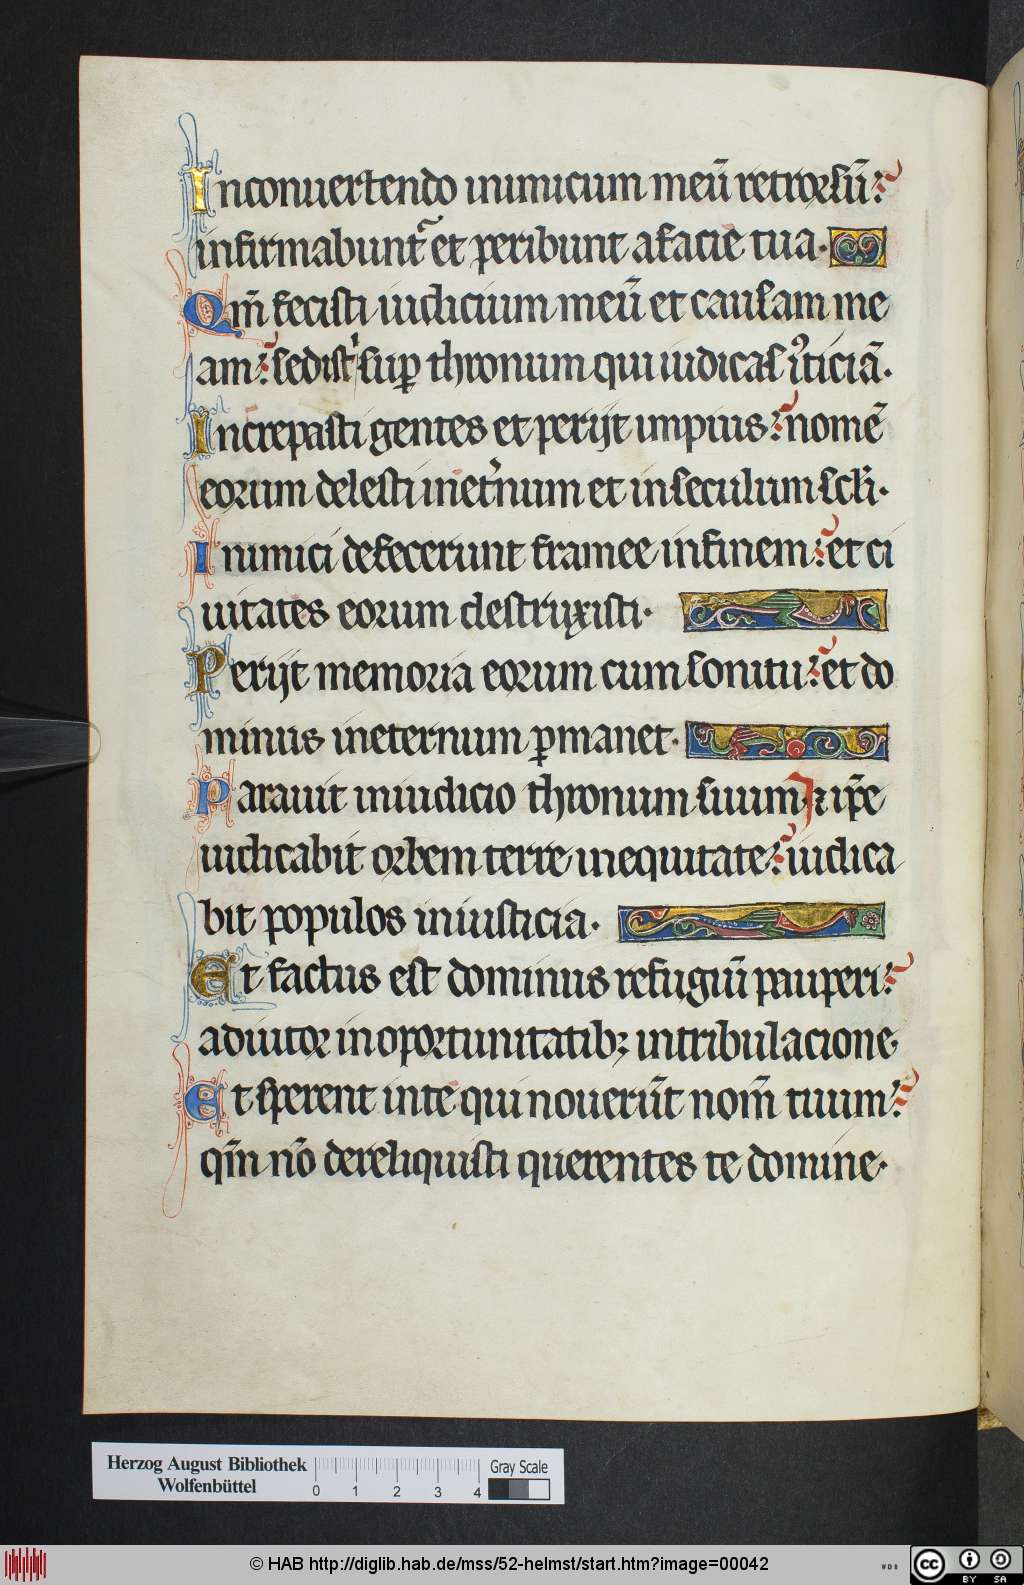 Inconuertendo inimicum meū retrorsū:
infirmabunt᷑ et peribunt afacie tua.
Qm̄ fecisti iudicium meū et causam me
am: sedisti sup thronum qui iudicas iꝰticiā.
Increpasti gentes et perijt impius: nomē
eorum delesti inet͛num et inseculum scłi.
Inimici defecerunt framee infinem: et ci
uitates eorum destruxisti.
Perijt memoria eorum cum sonitu: et do
minus ineternum ꝑmanet.
Parauit iniudicio thronum suum: ⁊ ip̄e
iudicabit orbem terre inequitate: iudica
bit populos iniusticia.
Et factus est dominus refugiū pauperi:
adiutor inoportunitatibꝫ intribulacione.
Et sperent inte qui nouerūt nom̄ tuum:
qm̄ nō dereliquisti querentes te domine.
Herzog August Bibliothek
Wolfenbüttel
0 1 2 3 4
Gray Scale
© HAB http://diglib.hab.de/mss/52-helmst/start.htm?image=00042
WDB
cc
BY SA